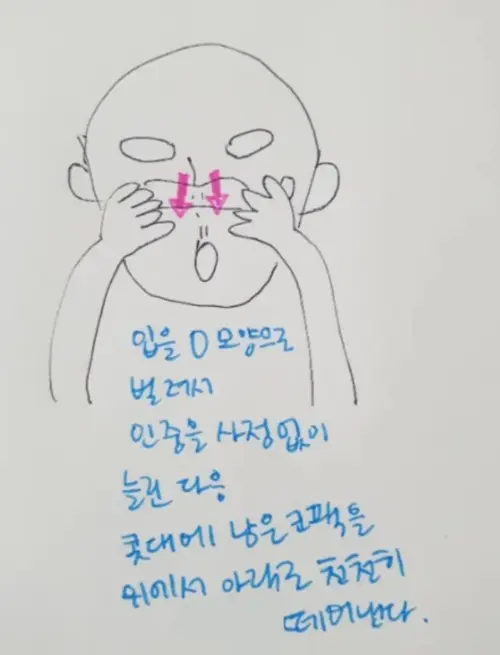 입을 O 모양으로
벌려서
인중을 사정없이
늘린 다음
콧대에 낳은 코팩을
위에서 아래로 천천히
떼어낸다.